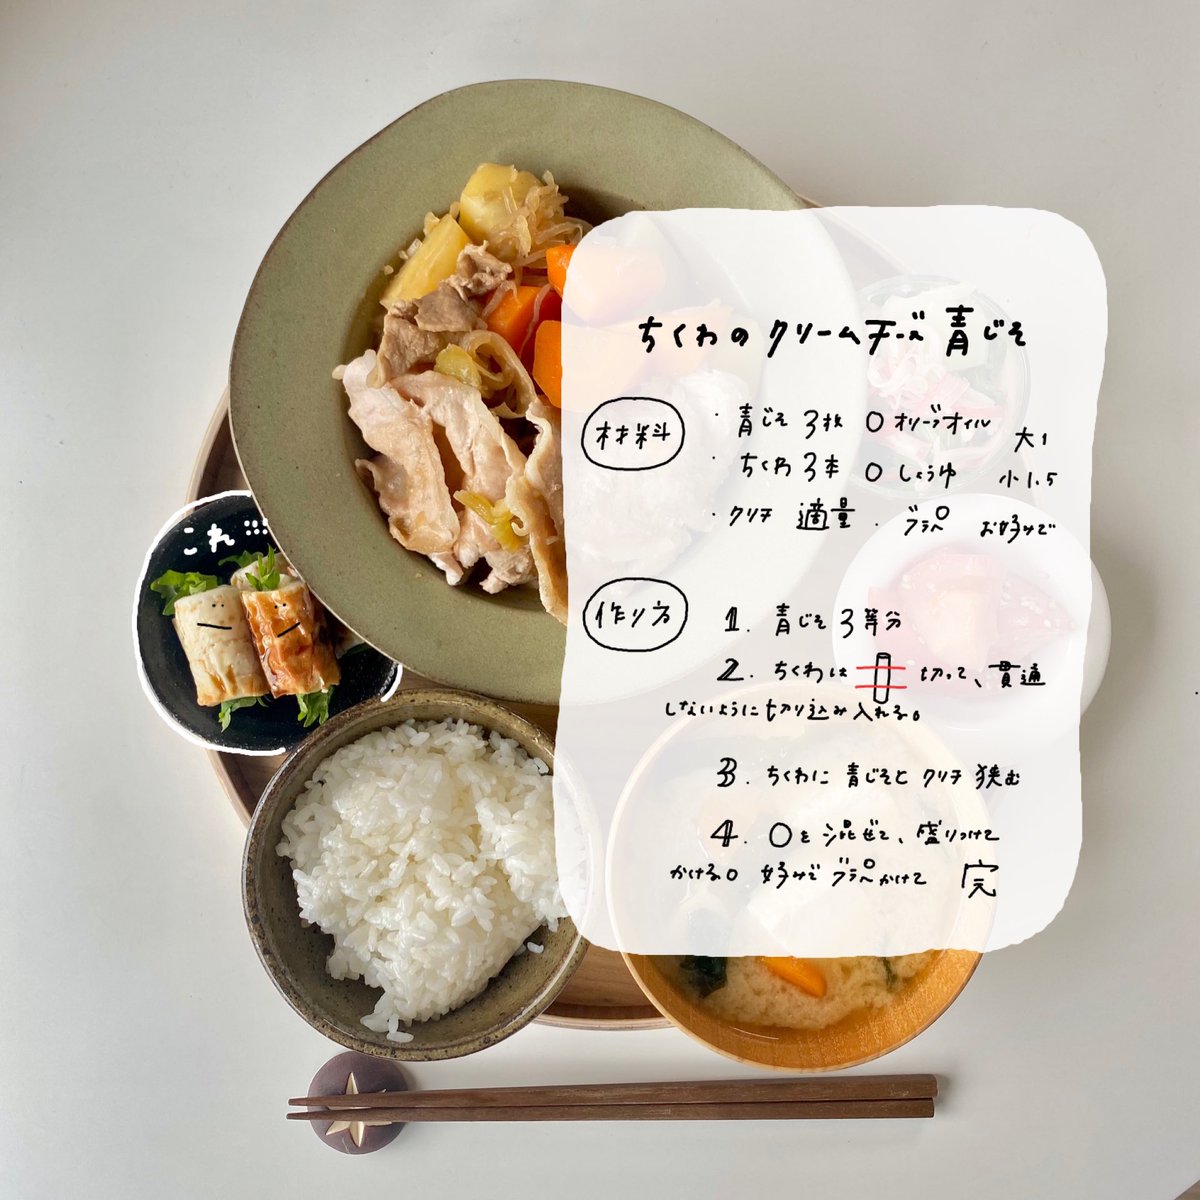 これ
ちくわのクリームチーズ青じそ
材料
・青じそ 3枚 〇オリーブオイル 大1
・ちくわ 3本 〇しょうゆ 小1.5
・クリチ 適量 ・ブラペ お好みで
作り方
1. 青じそ 3等分
2. ちくわは 切って、貫通
しないように切り込み入れる。
3. ちくわに 青じそと クリチ 狭む
4. 〇を混ぜて、盛りつけて
かける。好みで ブラペかけて 完